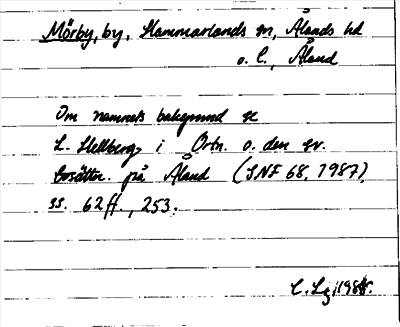 Mörby, by, Hammarlands sn, Ålands hd
o. l., Åland
Om namnets bakgrund se
L. Hellberg i Ortn. o. den sv.
bosättn. på Åland (SNF 68, 1987),
ss. 62ff., 253.